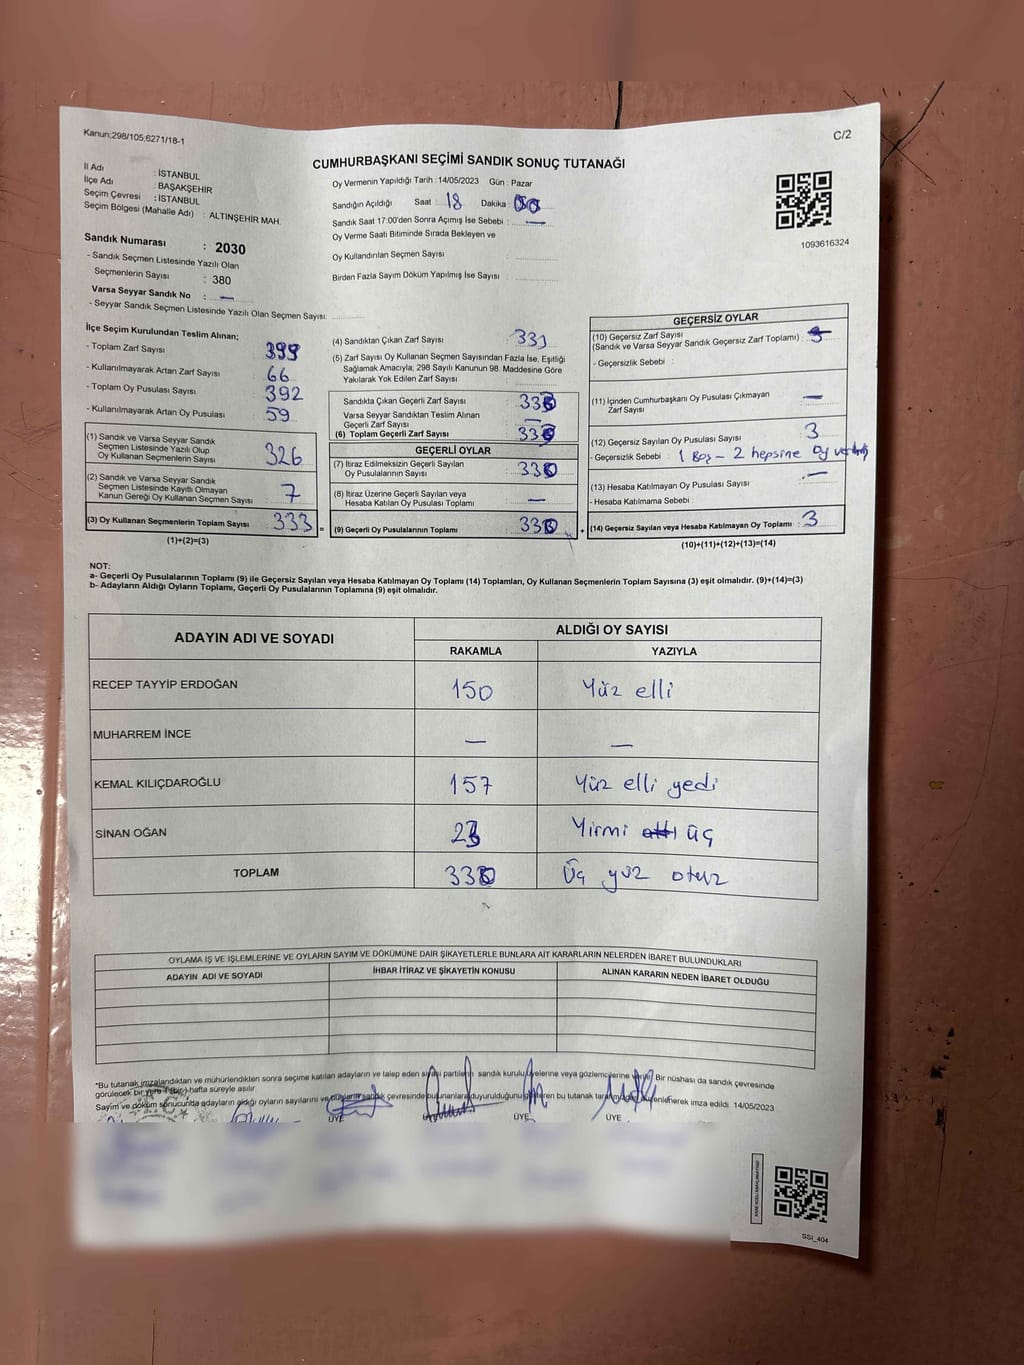 Kanun;298/105;6271/18-1
C/2
CUMHURBAŞKANI SEÇİMİ SANDIK SONUÇ TUTANAĞI
İl Adı : İSTANBUL
İlçe Adı : BAŞAKŞEHİR
Seçim Çevresi : İSTANBUL
Seçim Bölgesi (Mahalle Adı) : ALTINŞEHİR MAH.
Sandık Numarası : 2030
- Sandık Seçmen Listesinde Yazılı Olan
Seçmenlerin Sayısı : 380
Varsa Seyyar Sandık No : —
- Seyyar Sandık Seçmen Listesinde Yazılı Olan Seçmen Sayısı:
Oy Vermenin Yapıldığı Tarih : 14/05/2023 Gün : Pazar
Sandığın Açıldığı Saat : 18 Dakika :
Sandık Saat 17.00'den Sonra Açmış İse Sebebi : —
Oy Verme Saati Bitiminde Sırada Bekleyen ve
Oy Kullandırılan Seçmen Sayısı :
Birden Fazla Sayım Döküm Yapılmış İse Sayısı :
1093616324
İlçe Seçim Kurulundan Teslim Alınan;
- Toplam Zarf Sayısı : 399
- Kullanılmayarak Artan Zarf Sayısı : 66
- Toplam Oy Pusulası Sayısı : 392
- Kullanılmayarak Artan Oy Pusulası : 59
(1) Sandık ve Varsa Seyyar Sandık
Seçmen Listesinde Yazılı Olup
Oy Kullanan Seçmenlerin Sayısı : 326
(2) Sandık ve Varsa Seyyar Sandık
Seçmen Listesinde Kayıtlı Olmayan
Kanun Gereği Oy Kullanan Seçmen Sayısı : 7
(3) Oy Kullanan Seçmenlerin Toplam Sayısı : 333 =
(1)+(2)=(3)
(4) Sandıktan Çıkan Zarf Sayısı : 333
(5) Zarf Sayısı Oy Kullanan Seçmen Sayısından Fazla İse, Eşitliği
Sağlamak Amacıyla; 298 Sayılı Kanunun 98. Maddesine Göre
Yakılarak Yok Edilen Zarf Sayısı :
Sandıkta Çıkan Geçerli Zarf Sayısı :
Varsa Seyyar Sandıktan Teslim Alınan
Geçerli Zarf Sayısı : —
(6) Toplam Geçerli Zarf Sayısı :
GEÇERLİ OYLAR
(7) İtiraz Edilmeksizin Geçerli Sayılan
Oy Pusulalarının Sayısı : 330
(8) İtiraz Üzerine Geçerli Sayılan veya
Hesaba Katılan Oy Pusulası Toplamı : —
(9) Geçerli Oy Pusulalarının Toplamı : 330 +
GEÇERSİZ OYLAR
(10) Geçersiz Zarf Sayısı
(Sandık ve Varsa Seyyar Sandık Geçersiz Zarf Toplamı) :
- Geçersizlik Sebebi :
(11) İçinden Cumhurbaşkanı Oy Pusulası Çıkmayan
Zarf Sayısı : —
(12) Geçersiz Sayılan Oy Pusulası Sayısı : 3
- Geçersizlik Sebebi : 1 Boş – 2 hepsine oy
(13) Hesaba Katılmayan Oy Pusulası Sayısı : —
- Hesaba Katılmama Sebebi :
(14) Geçersiz Sayılan veya Hesaba Katılmayan Oy Toplamı : 3
(10)+(11)+(12)+(13)=(14)
NOT:
a- Geçerli Oy Pusulalarının Toplamı (9) ile Geçersiz Sayılan veya Hesaba Katılmayan Oy Toplamı (14) Toplamları, Oy Kullanan Seçmenlerin Toplam Sayısına (3) eşit olmalıdır. (9)+(14)=(3)
b- Adayların Aldığı Oyların Toplamı, Geçerli Oy Pusulalarının Toplamına (9) eşit olmalıdır.
ADAYIN ADI VE SOYADI ALDIĞI OY SAYISI
RAKAMLA YAZIYLA
RECEP TAYYİP ERDOĞAN 150 Yüz elli
MUHARREM İNCE — —
KEMAL KILIÇDAROĞLU 157 Yüz elli yedi
SİNAN OĞAN 23 Yirmi altı üç
TOPLAM 330 Üç yüz otuz
OYLAMA İŞ VE İŞLEMLERİNE VE OYLARIN SAYIM VE DÖKÜMÜNE DAİR ŞİKAYETLERLE BUNLARA AİT KARARLARIN NELERDEN İBARET BULUNDUKLARI
ADAYIN ADI VE SOYADI İHBAR İTİRAZ VE ŞİKAYETİN KONUSU ALINAN KARARIN NEDEN İBARET OLDUĞU
*Bu tutanak imzalandıktan ve mühürlendikten sonra seçime katılan adayların ve talep eden siyasi partilerin sandık kurulu üyelerine veya gözlemcilerine verilir. Bir nüshası da sandık çevresinde
görülecek bir yere 1 (bir) hafta süreyle asılır.
Sayım ve döküm sonucunda adayların aldığı oyların sayılarını ve bunların sandık çevresinde bulunanlara duyurulduğunu gösteren bu tutanak tarafımızdan düzenlenerek imza edildi. 14/05/2023
ÜYE ÜYE ÜYE
SSİ_404